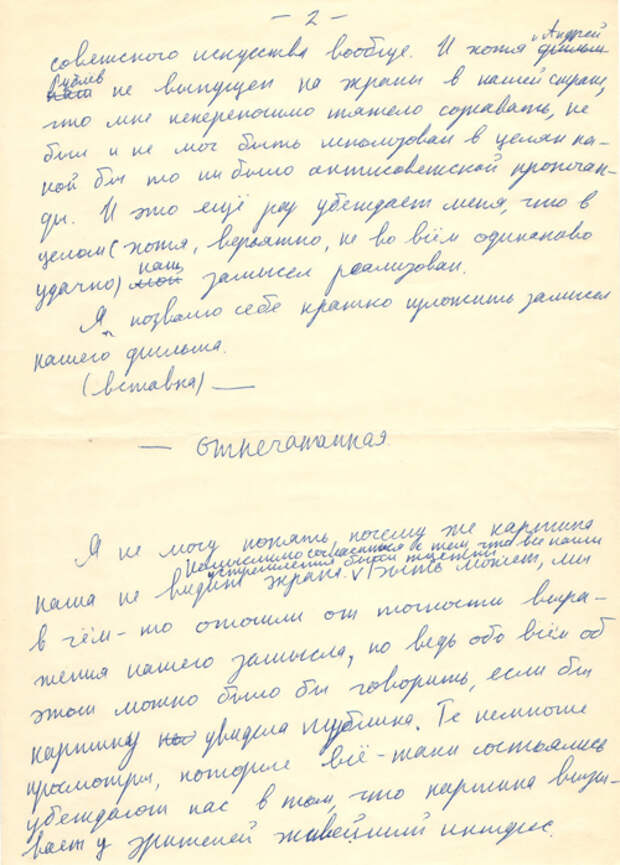 – 2 –
советского искусства вообще. И хотя "Андрей фильм
Рублев" наш не выпущен на экраны в нашей стране,
что мне непереносимо тяжело сознавать, не
был и не мог быть использован в целях ка-
кой бы то ни было антисоветской пропаган-
ды. И это ещё раз убеждает меня, что в
целом (хотя, вероятно, не во всём одинаково
удачно) наш мой замысел реализован.
Я позволю себе кратко изложить замысел
нашего фильма.
(вставка) —
— отпечатанная.
Я не могу понять, почему же картина
немыслимо согласиться с тем что все наши
устремления были тщетны
наша не видит экрана. V Быть может, мы
в чём-то отошли от точности выра-
жения нашего замысла, но ведь обо всём об
этом можно было бы говорить, если бы
картину увидела публика. Те немногие
просмотры, которые всё-таки состоялись
убеждают нас в том, что картина вызы-
вает у зрителей живейший интерес.